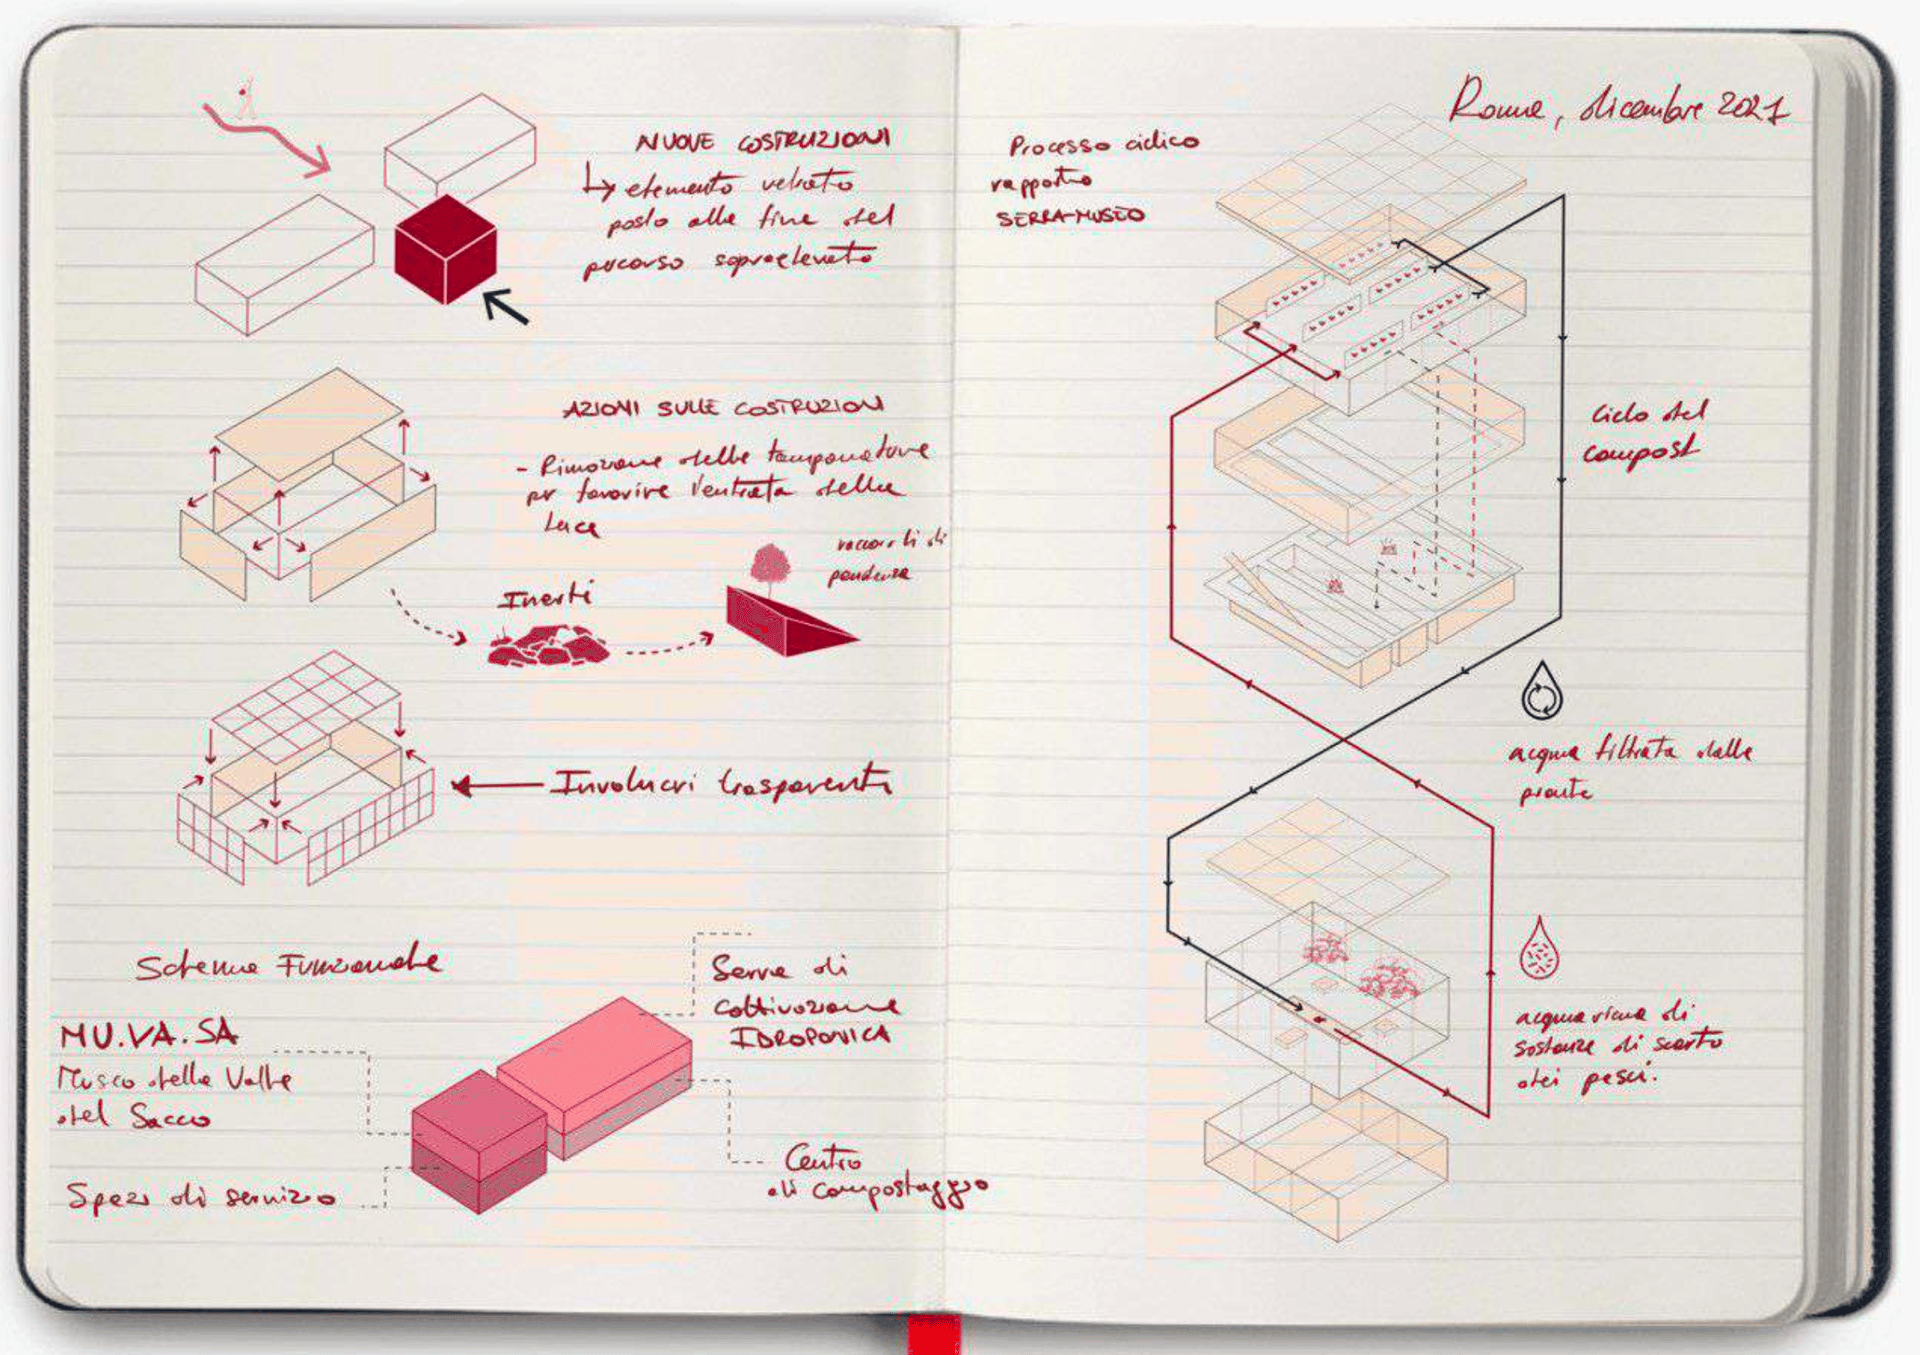 NUOVE COSTRUZIONI
elemento vetrato
posto alla fine del
percorso sopraelevato
AZIONI SULLE COSTRUZIONI
- Rimozione delle tamponature
per favorire l'entrata della
luce
Inerti
raccordi di
pendenza
Involucri trasparenti
Schema Funzionale
MU.VA.SA
Museo della Valle
del Sacco
Spazi di servizio
Serra di
coltivazione
IDROPONICA
Centro
di compostaggio
Roma, dicembre 2021
Processo ciclico
rapporto
SERRA-MUSEO
Ciclo del
compost
acqua filtrata dalle
piante
acqua ricca di
sostanze di scarto
dei pesci.